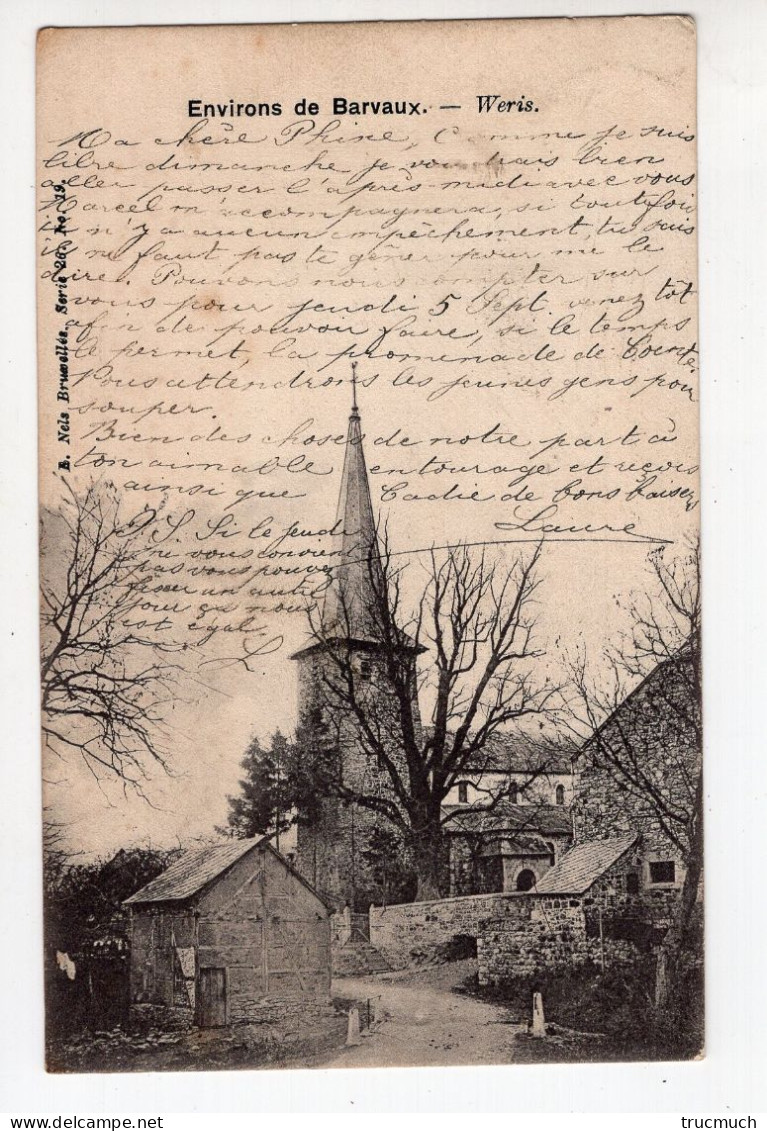 Environs de Barvaux. — Weris.
Ma chère Phine, Comme je suis
libre dimanche je voudrais bien
aller passer l'après-midi avec vous
Marcel m'accompagnera, si toutefois
il n'y a aucun empêchement, tu sais
il ne faut pas te gêner pour me le
dire. Pouvons nous compter sur
vous pour jeudi 5 Sept. venez tôt
afin de pouvoir faire, si le temps
le permet, la promenade de
Nous attendrons les jeunes gens pour
souper.
Bien des choses de notre part à
ton aimable entourage et reçois
ainsi que de bons baisers
Laure
P.S. Si le jeudi
ne vous convient
pas vous pouvez
fixer un autre
jour ça nous
est égal
L
E. Nels Bruxelles. Serie 26. No. 19.
trucmuch